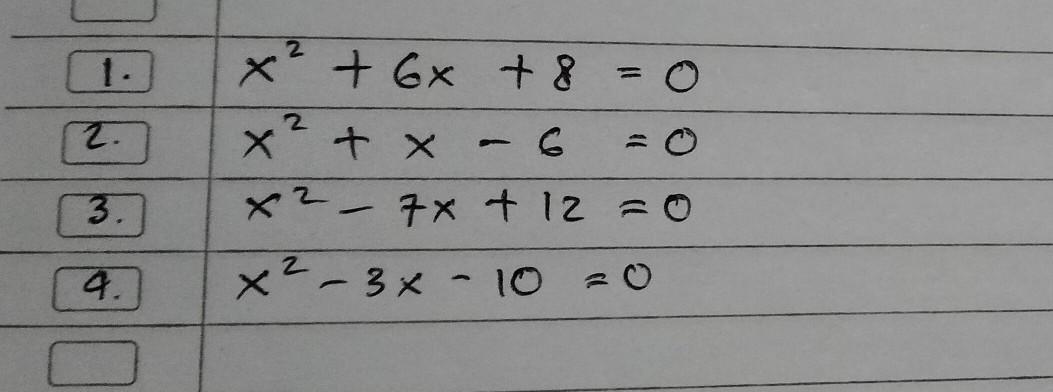 1. x² + 6x + 8 = 0
2. x² + x - 6 = 0
3. x² - 7x + 12 = 0
4. x² - 3x - 10 = 0